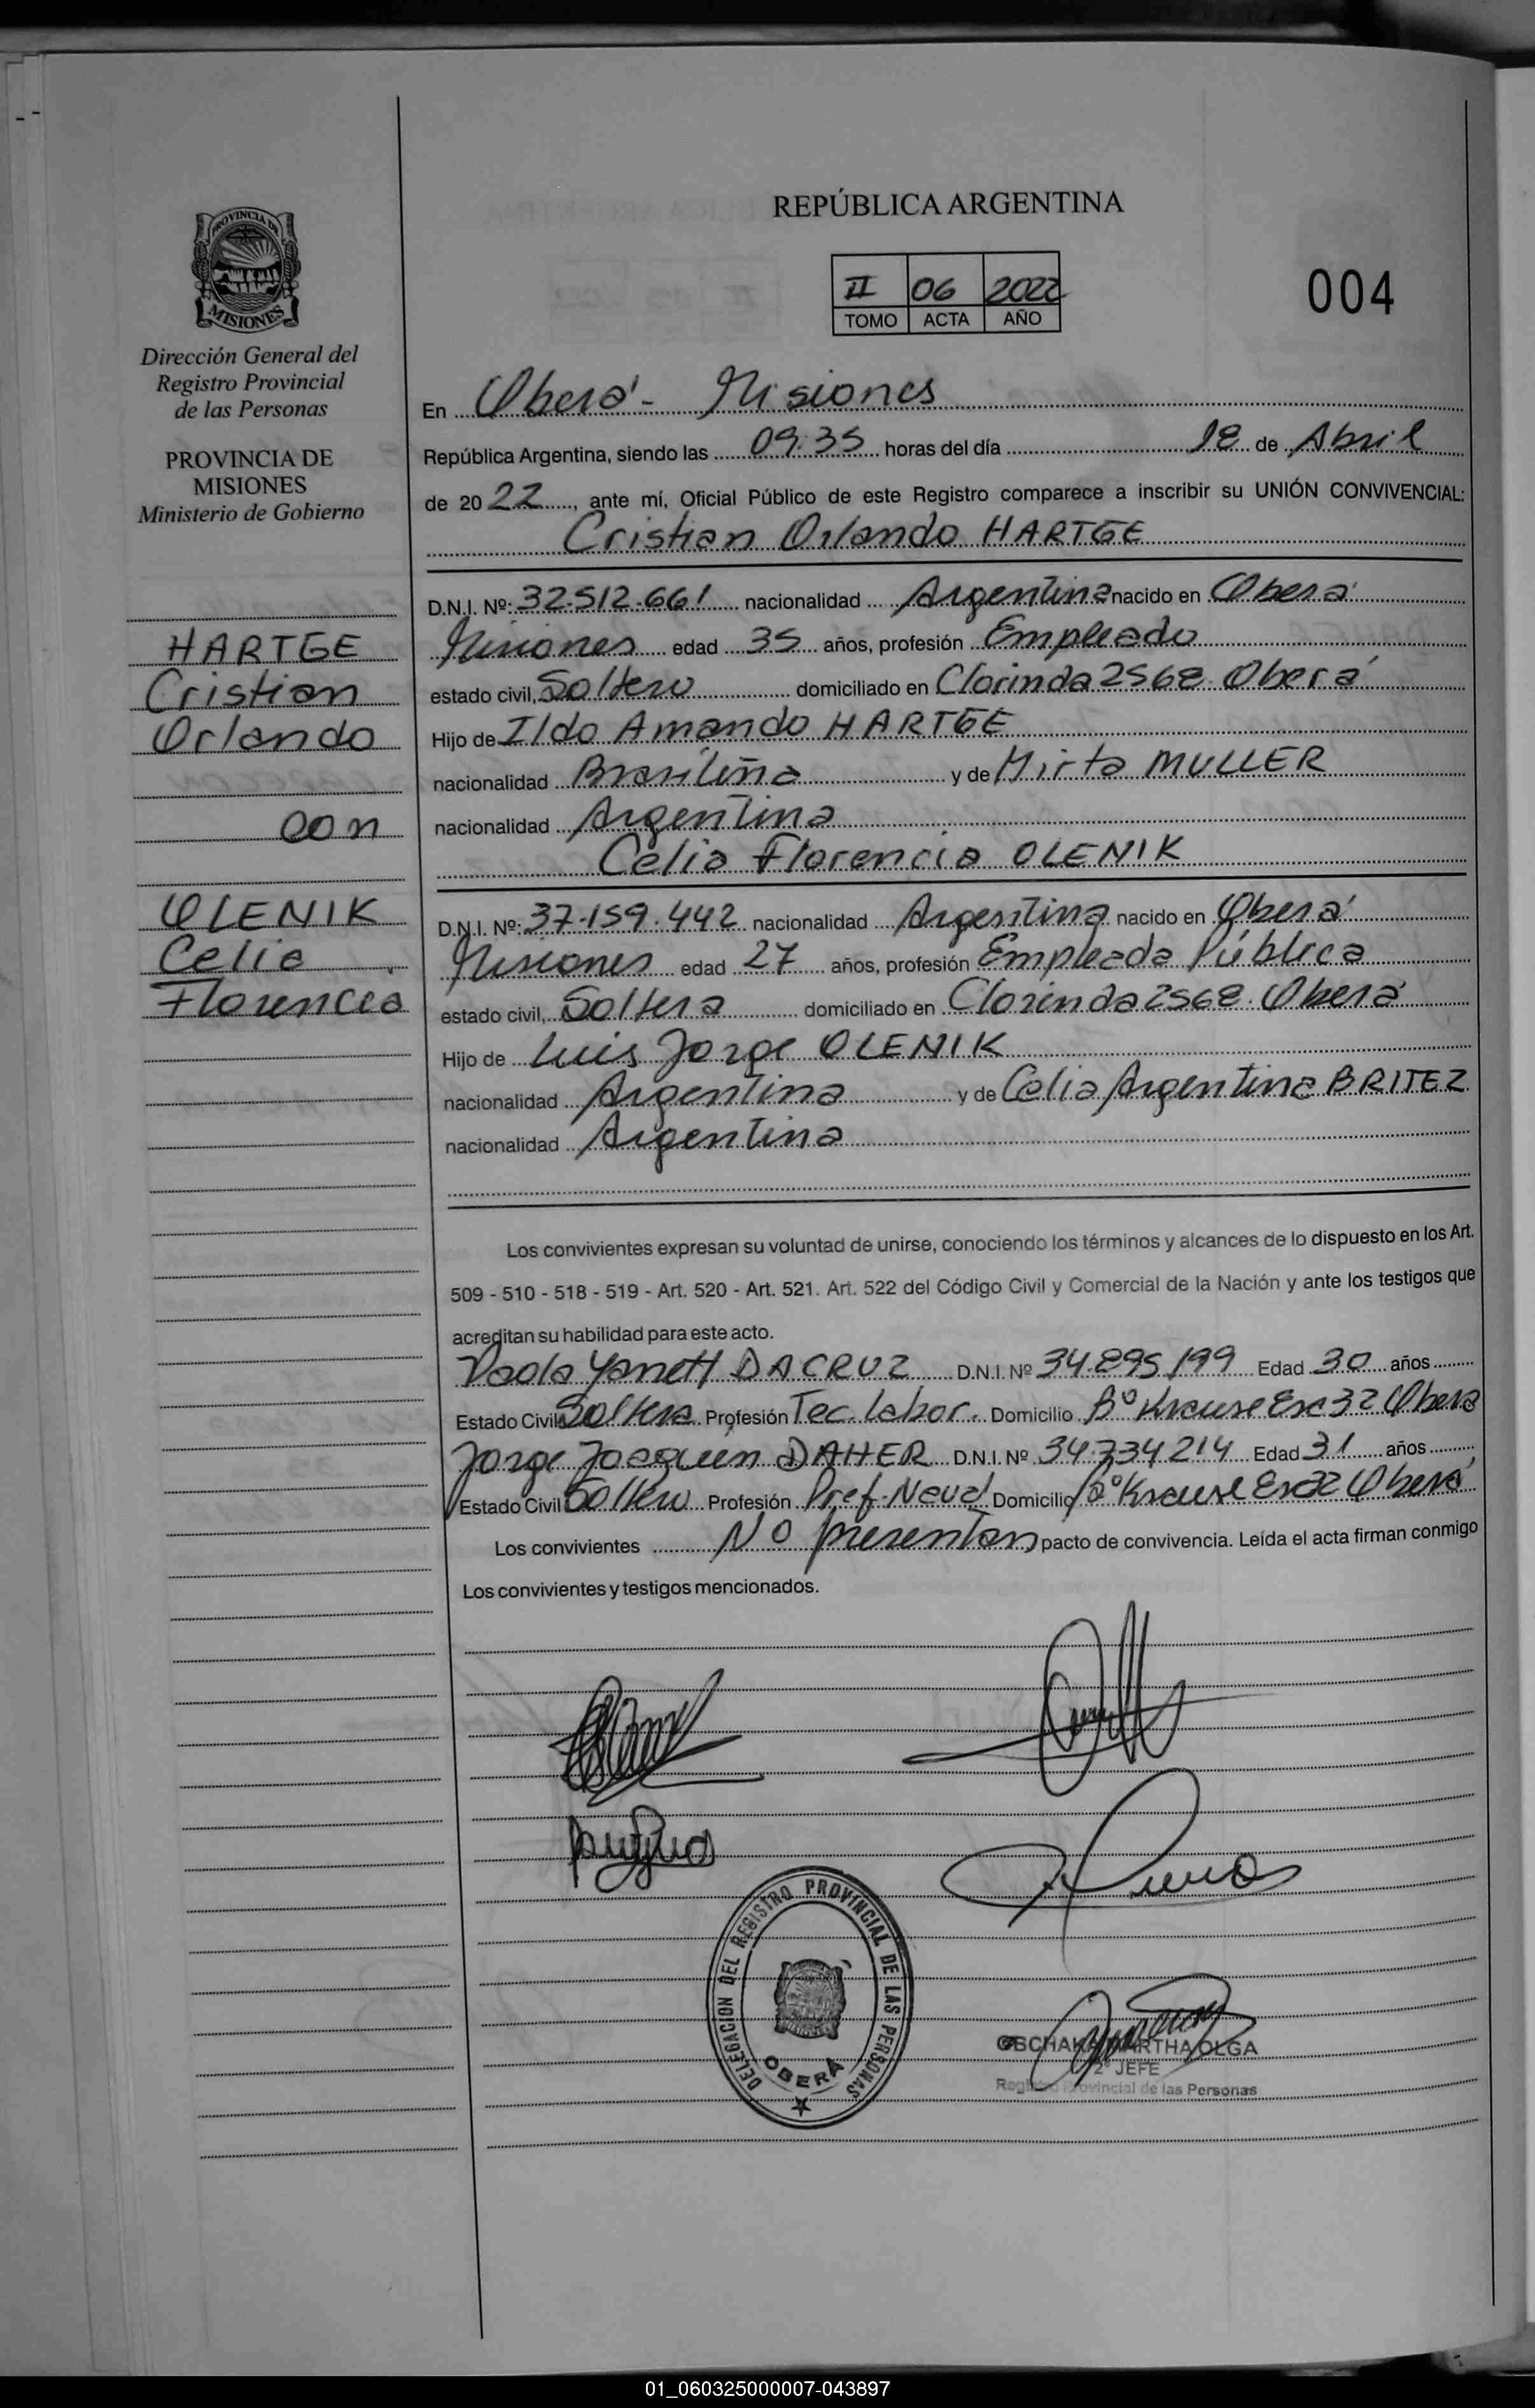 REPÚBLICA ARGENTINA
PROVINCIA DE
MISIONES
II 06 2022
TOMO ACTA AÑO
004
Dirección General del
Registro Provincial
de las Personas
PROVINCIA DE
MISIONES
Ministerio de Gobierno
En Oberá - Misiones
República Argentina, siendo las 09:35 horas del día 18 de Abril
de 20 22, ante mí, Oficial Público de este Registro comparece a inscribir su UNIÓN CONVIVENCIAL:
Cristian Orlando HARTGE
HARTGE
Cristian
Orlando
con
OLENIK
Celia
Florencia
D.N.I. Nº: 32.512.661 nacionalidad Argentina nacido en Oberá
Misiones edad 35 años, profesión Empleado
estado civil, Soltero domiciliado en Clorinda 2568 Oberá
Hijo de Ildo Amando HARTGE
nacionalidad Brasileña y de Mirta MULLER
nacionalidad Argentina
Celia Florencia OLENIK
D.N.I. Nº: 37.159.442 nacionalidad Argentina nacido en Oberá
Misiones edad 27 años, profesión Empleada Pública
estado civil, Soltera domiciliado en Clorinda 2568. Oberá
Hijo de Luis Jorge OLENIK
nacionalidad Argentina y de Celia Argentina BRITEZ
nacionalidad Argentina
Los convivientes expresan su voluntad de unirse, conociendo los términos y alcances de lo dispuesto en los Art.
509 - 510 - 518 - 519 - Art. 520 - Art. 521. Art. 522 del Código Civil y Comercial de la Nación y ante los testigos que
acreditan su habilidad para este acto.
Paola Yanett DACRUZ D.N.I. Nº 34.895.199 Edad 30 años
Estado Civil Soltera Profesión Tec. Labor. Domicilio Bº Krause Esc 32 Oberá
Jorge Joaquín DAHER D.N.I. Nº 34.734.214 Edad 31 años
Estado Civil Soltero Profesión Pref. Naval Domicilio Bº Krause Esc 32 Oberá
Los convivientes No presentan pacto de convivencia. Leída el acta firman conmigo
Los convivientes y testigos mencionados.
DELEGACION DEL REGISTRO PROVINCIAL DE LAS PERSONAS
OBERÁ
MARTHA OLGA
2º JEFE
Registro Provincial de las Personas
01_060325000007-043897